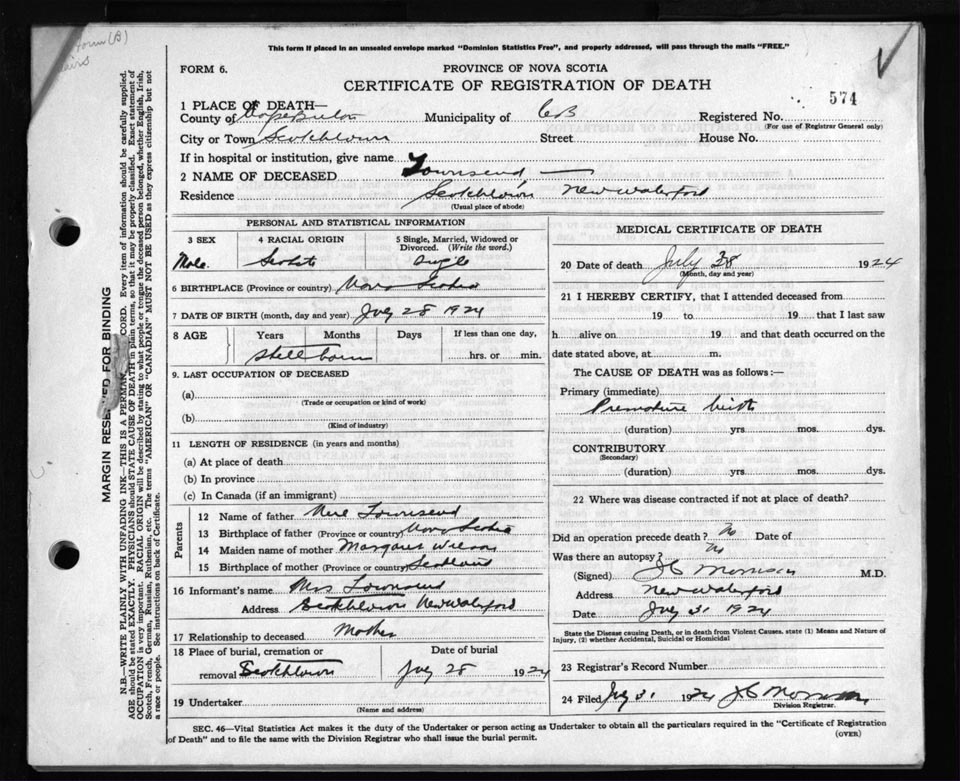 This form if placed in an unsealed envelope marked "Dominion Statistics Free", and properly addressed, will pass through the mails "FREE."
FORM 6.
PROVINCE OF NOVA SCOTIA
CERTIFICATE OF REGISTRATION OF DEATH
574
1 PLACE OF DEATH—
County of Cape Breton Municipality of CB Registered No.
(For use of Registrar General only)
City or Town Scotchtown Street House No.
If in hospital or institution, give name
2 NAME OF DECEASED Townsend —
Residence Scotchtown New Waterford
(Usual place of abode)
PERSONAL AND STATISTICAL INFORMATION
3 SEX 4 RACIAL ORIGIN 5 Single, Married, Widowed or Divorced. (Write the word.)
Male Scotch Single
6 BIRTHPLACE (Province or country) Nova Scotia
7 DATE OF BIRTH (month, day and year) July 28 1924
8 AGE Years Months Days If less than one day,
Still born hrs. or min.
9. LAST OCCUPATION OF DECEASED
(a)
(Trade or occupation or kind of work)
(b)
(Kind of industry)
11 LENGTH OF RESIDENCE (in years and months)
(a) At place of death
(b) In province
(c) In Canada (if an immigrant)
Parents
12 Name of father Townsend
13 Birthplace of father (Province or country) Nova Scotia
14 Maiden name of mother Margaret Wilson
15 Birthplace of mother (Province or country) Scotland
16 Informant's name Mrs Townsend
Address Scotchtown New Waterford
17 Relationship to deceased Mother
18 Place of burial, cremation or removal Scotchtown
Date of burial
July 28 1924
19 Undertaker
(Name and address)
MEDICAL CERTIFICATE OF DEATH
20 Date of death July 28 1924
(Month, day and year)
21 I HEREBY CERTIFY, that I attended deceased from
19 to 19 that I last saw
h alive on 19 and that death occurred on the
date stated above, at m.
The CAUSE OF DEATH was as follows:—
Primary (immediate)
Premature birth
(duration) yrs mos. dys.
CONTRIBUTORY
(Secondary)
(duration) yrs. mos. dys.
22 Where was disease contracted if not at place of death?
Did an operation precede death? No Date of
Was there an autopsy? No
(Signed) Morrison M.D.
Address New Waterford
Date July 31 1924
State the Disease causing Death, or in death from Violent Causes. state (1) Means and Nature of
Injury, (2) whether Accidental, Suicidal or Homicidal
23 Registrar's Record Number
24 Filed July 31 1924 Morrison
Division Registrar.
SEC. 46—Vital Statistics Act makes it the duty of the Undertaker or person acting as Undertaker to obtain all the particulars required in the "Certificate of Registration
of Death" and to file the same with the Division Registrar who shall issue the burial permit.
(OVER)
MARGIN RESERVED FOR BINDING
N.B.—WRITE PLAINLY WITH UNFADING INK—THIS IS A PERMAN CORD. Every item of information should be carefully supplied.
AGE should be stated EXACTLY. PHYSICIANS should STATE CAUSE OF DEATH in plain terms, so that it may be properly classified. Exact statement of
OCCUPATION is very important. RACIAL ORIGIN will be described by stating to what people or tongue the deceased person belonged, whether English, Irish,
Scotch, French, German, Russian, Ruthenian, etc. The terms "AMERICAN" or "CANADIAN" MUST NOT BE USED as they express citizenship but not
a race or people. See instructions on back of Certificate.